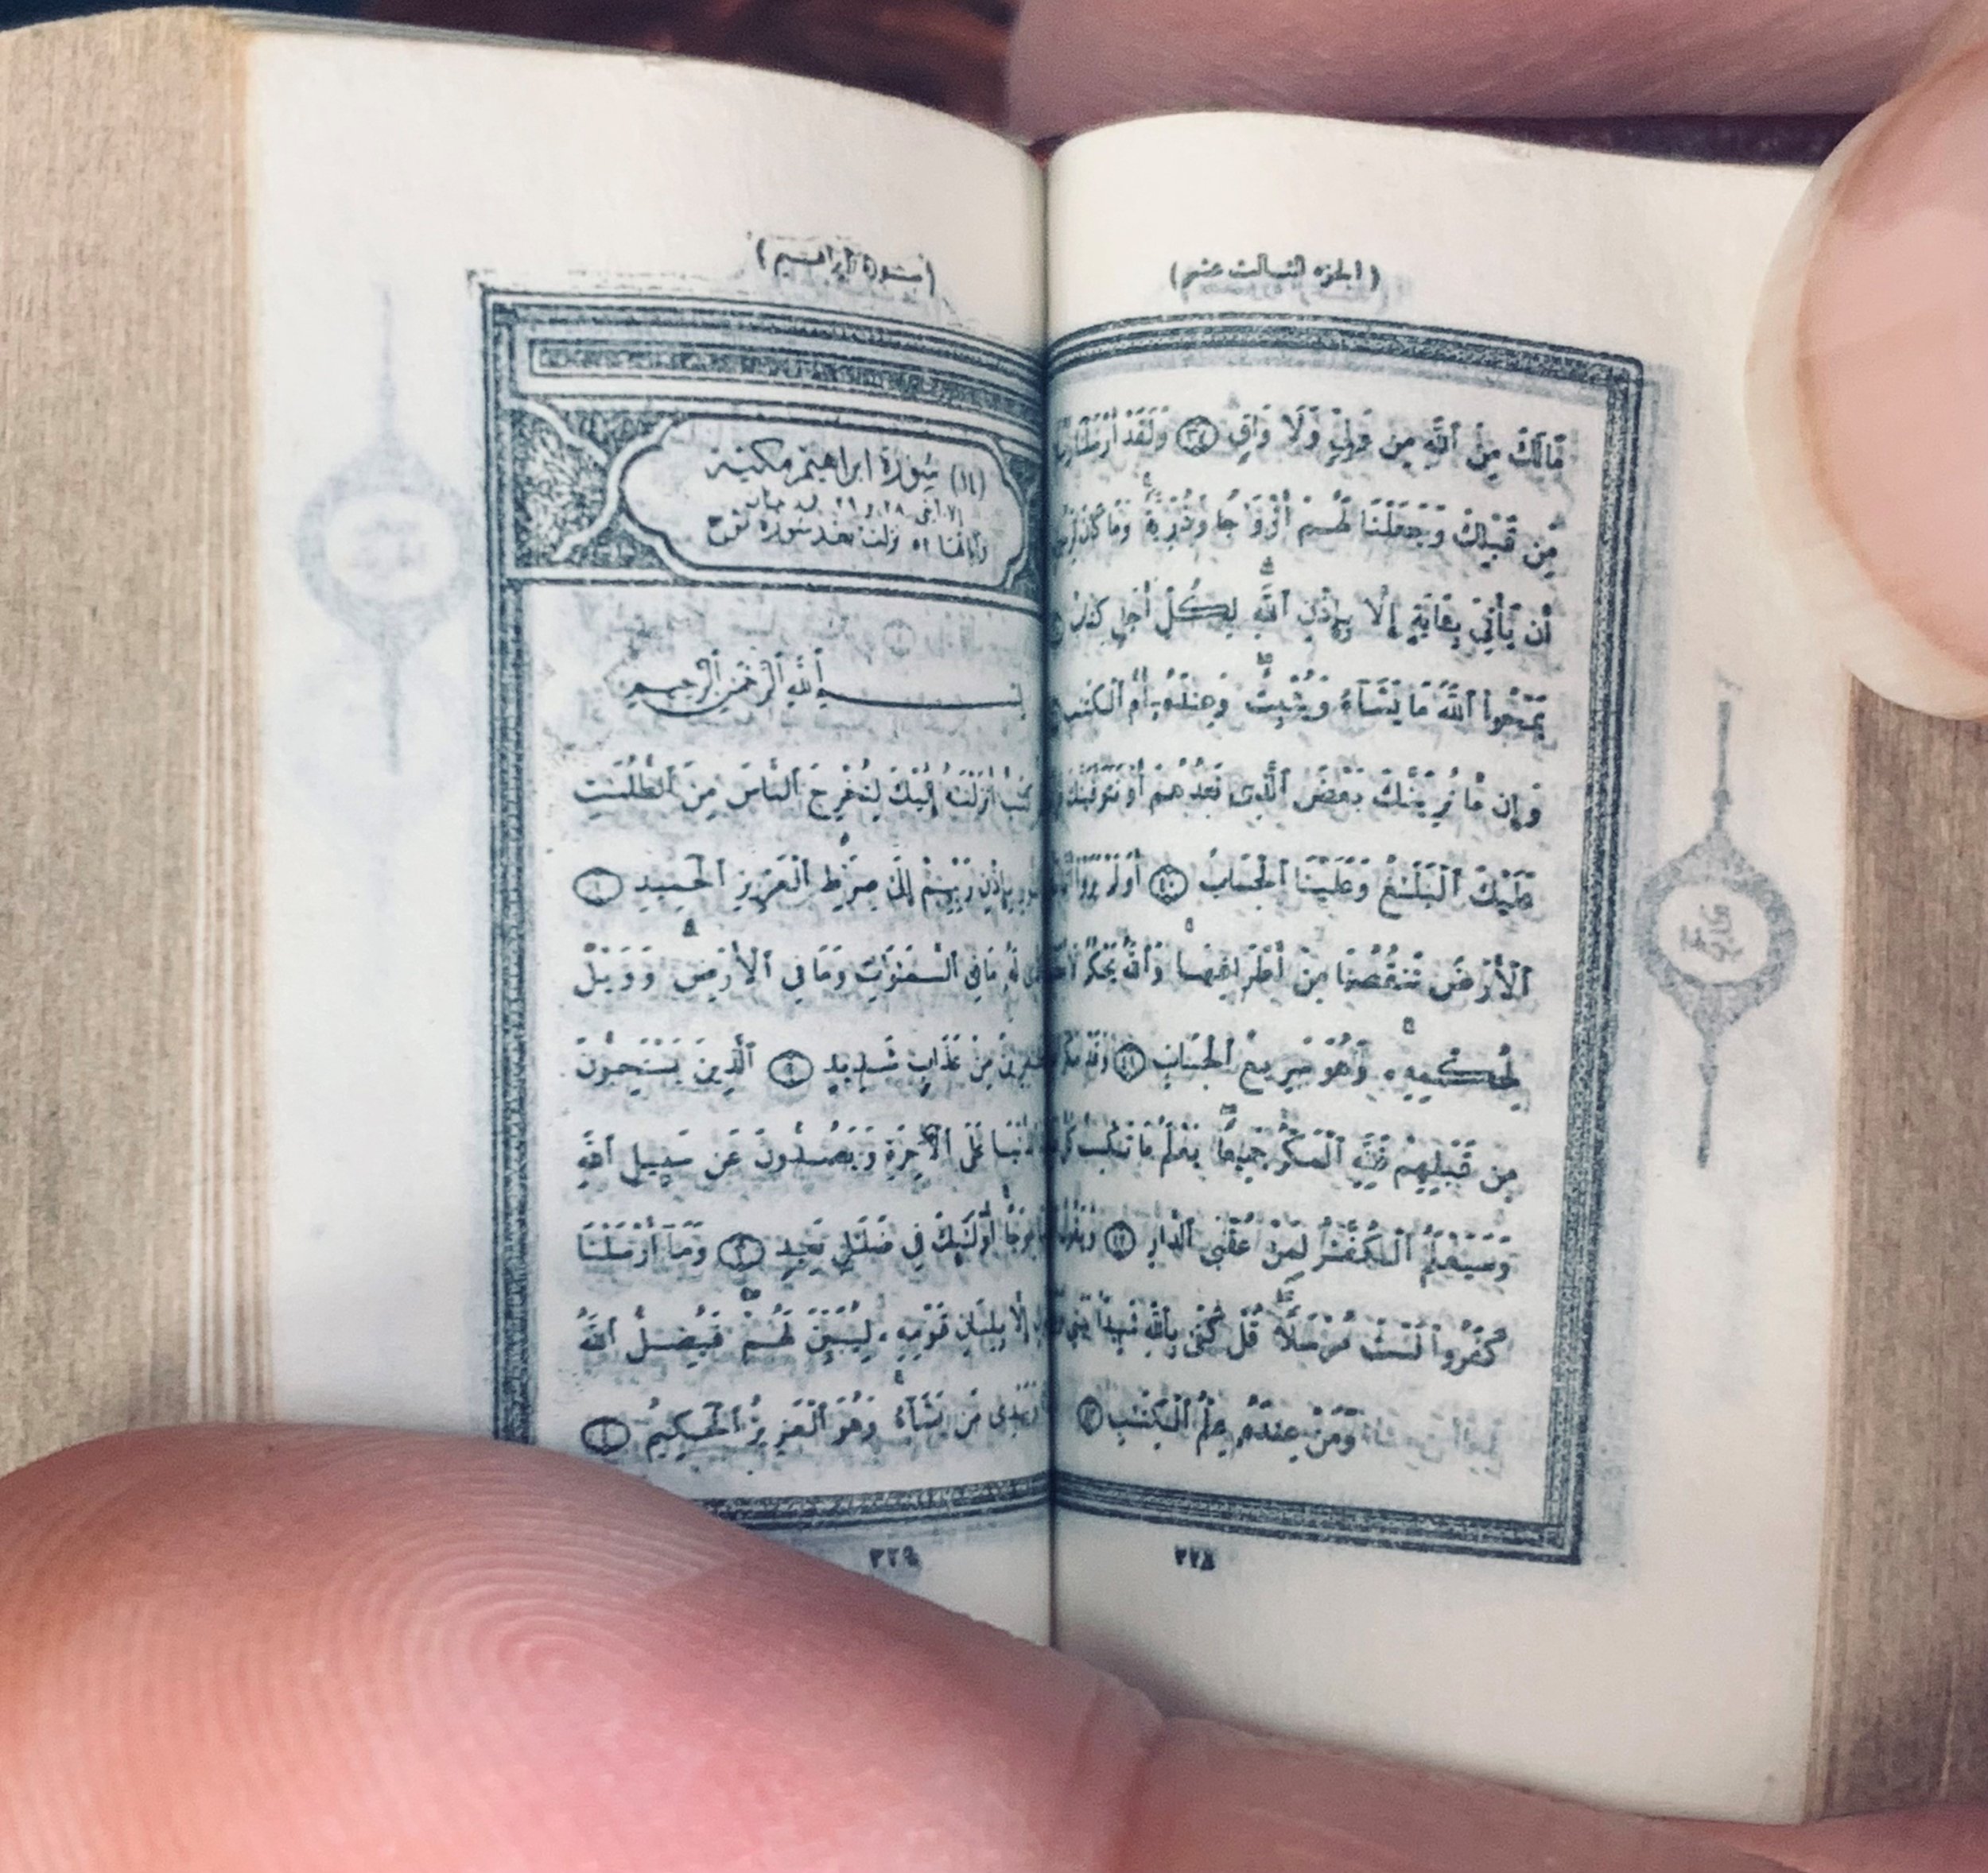 (الجزء الثالث عشر)
مَالَكَ مِنَ ٱللَّهِ مِن وَلِيٍّ وَلَا وَاقٍ ٣٧ وَلَقَدْ أَرْسَلْنَا
مِّن قَبْلِكَ وَجَعَلْنَا لَهُمْ أَزْوَٰجًا وَذُرِّيَّةً وَمَا كَانَ
أَن يَأْتِيَ بِـَٔايَةٍ إِلَّا بِإِذْنِ ٱللَّهِ لِكُلِّ أَجَلٍ كِتَابٌ
يَمْحُوا۟ ٱللَّهُ مَا يَشَآءُ وَيُثْبِتُ وَعِندَهُۥٓ أُمُّ ٱلْكِتَٰبِ
وَإِن مَّا نُرِيَنَّكَ بَعْضَ ٱلَّذِى نَعِدُهُمْ أَوْ نَتَوَفَّيَنَّكَ
عَلَيْكَ ٱلْبَلَٰغُ وَعَلَيْنَا ٱلْحِسَابُ ٤٠ أَوَلَمْ يَرَوْا۟
ٱلْأَرْضَ نَنقُصُهَا مِنْ أَطْرَافِهَا وَٱللَّهُ يَحْكُمُ
لِحُكْمِهِۦ وَهُوَ سَرِيعُ ٱلْحِسَابِ ٤١ وَقَدْ مَكَرَ
مِن قَبْلِهِمْ فَلِلَّهِ ٱلْمَكْرُ جَمِيعًا يَعْلَمُ مَا تَكْسِبُ كُلُّ
وَسَيَعْلَمُ ٱلْكُفَّٰرُ لِمَنْ عُقْبَى ٱلدَّارِ ٤٢ وَيَقُولُ
كَفَرُوا۟ لَسْتَ مُرْسَلًا قُلْ كَفَىٰ بِٱللَّهِ شَهِيدًۢا بَيْنِى
وَمَنْ عِندَهُۥ عِلْمُ ٱلْكِتَٰبِ ٤٣
٣٢٨
(سورة إبراهيم)
(١٤) سُورَةُ ابراهيم مكيّة
وآياتها ٥٢ نزلت بعد سورة نوح
بِسْمِ ٱللَّهِ ٱلرَّحْمَٰنِ ٱلرَّحِيمِ
كِتَٰبٌ أَنزَلْنَٰهُ إِلَيْكَ لِتُخْرِجَ ٱلنَّاسَ مِنَ ٱلظُّلُمَٰتِ
بِإِذْنِ رَبِّهِمْ إِلَىٰ صِرَٰطِ ٱلْعَزِيزِ ٱلْحَمِيدِ ١
لَهُۥ مَا فِى ٱلسَّمَٰوَٰتِ وَمَا فِى ٱلْأَرْضِ وَوَيْلٌ
مِنْ عَذَابٍ شَدِيدٍ ٢ ٱلَّذِينَ يَسْتَحِبُّونَ
عَلَى ٱلْآخِرَةِ وَيَصُدُّونَ عَن سَبِيلِ ٱللَّهِ
عِوَجًا أُو۟لَٰٓئِكَ فِى ضَلَٰلٍۭ بَعِيدٍ ٣ وَمَآ أَرْسَلْنَا
إِلَّا بِلِسَانِ قَوْمِهِۦ لِيُبَيِّنَ لَهُمْ فَيُضِلُّ ٱللَّهُ
وَيَهْدِى مَن يَشَآءُ وَهُوَ ٱلْعَزِيزُ ٱلْحَكِيمُ ٤
٣٢٩